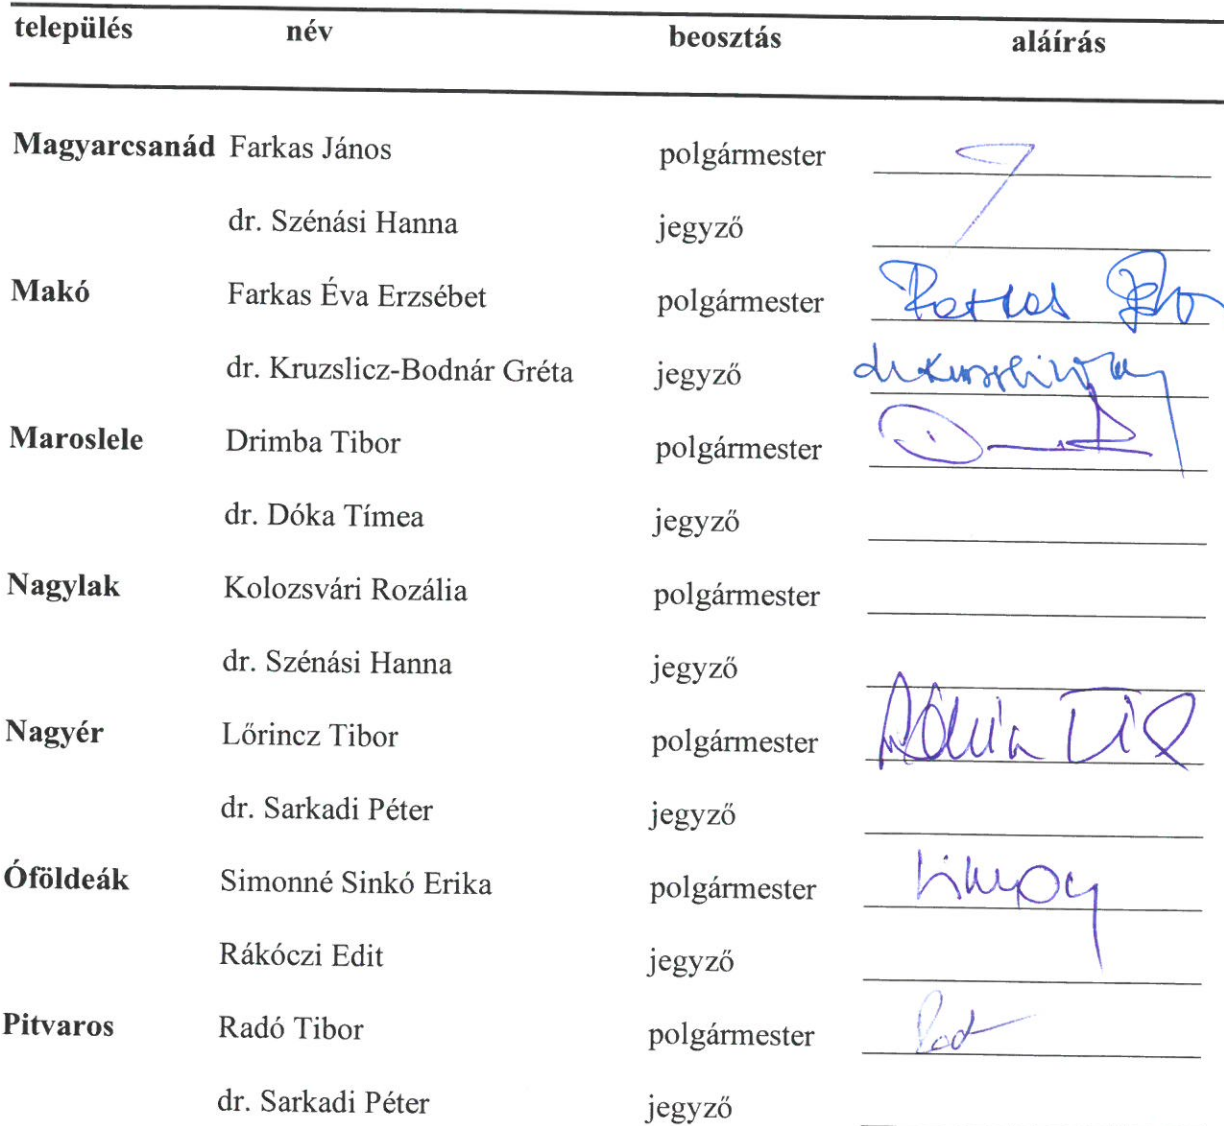 település név beosztás aláírás
Magyarcsanád Farkas János polgármester
dr. Szénási Hanna jegyző
Makó Farkas Éva Erzsébet polgármester
dr. Kruzslicz-Bodnár Gréta jegyző
Maroslele Drimba Tibor polgármester
dr. Dóka Tímea jegyző
Nagylak Kolozsvári Rozália polgármester
dr. Szénási Hanna jegyző
Nagyér Lőrincz Tibor polgármester
dr. Sarkadi Péter jegyző
Óföldeák Simonné Sinkó Erika polgármester
Rákóczi Edit jegyző
Pitvaros Radó Tibor polgármester
dr. Sarkadi Péter jegyző